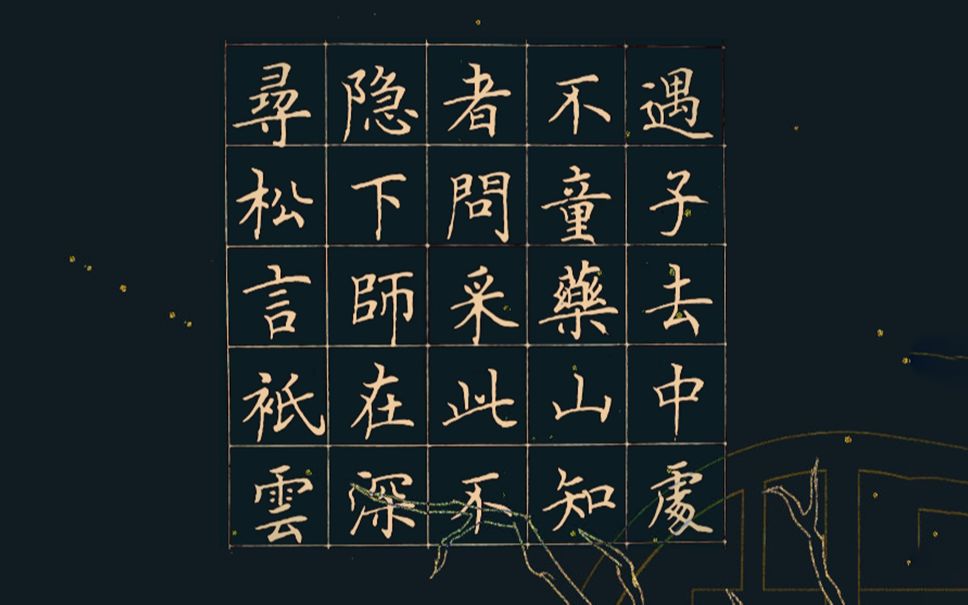 尋隐者不遇
松下問童子
言師采藥去
衹在此山中
雲深不知處